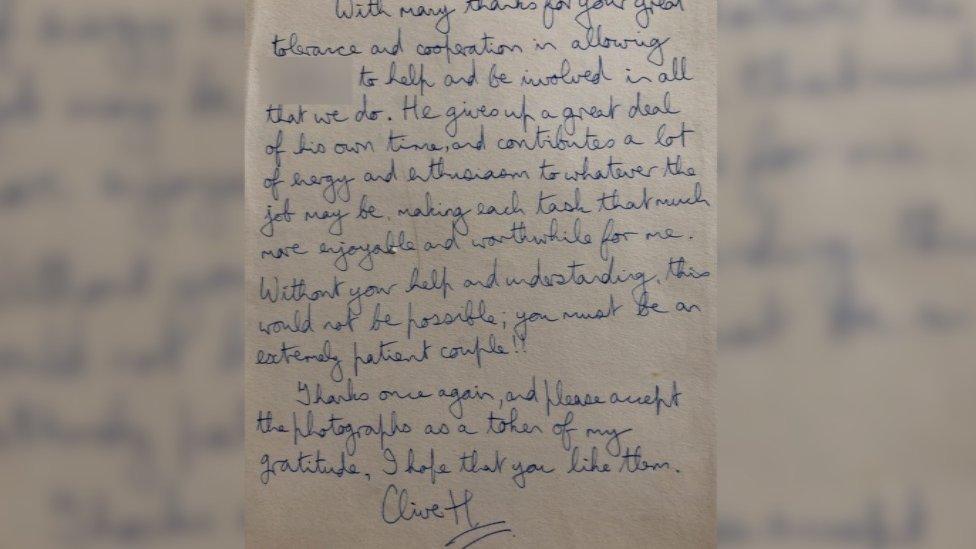 With many thanks for your great
tolerance and cooperation in allowing
to help and be involved in all
that we do. He gives up a great deal
of his own time, and contributes a lot
of energy and enthusiasm to whatever the
job may be, making each task that much
more enjoyable and worthwhile for me.
Without your help and understanding, this
would not be possible; you must be an
extremely patient couple!!
Thanks once again, and please accept
the photographs as a token of my
gratitude, I hope that you like them.
Clive H